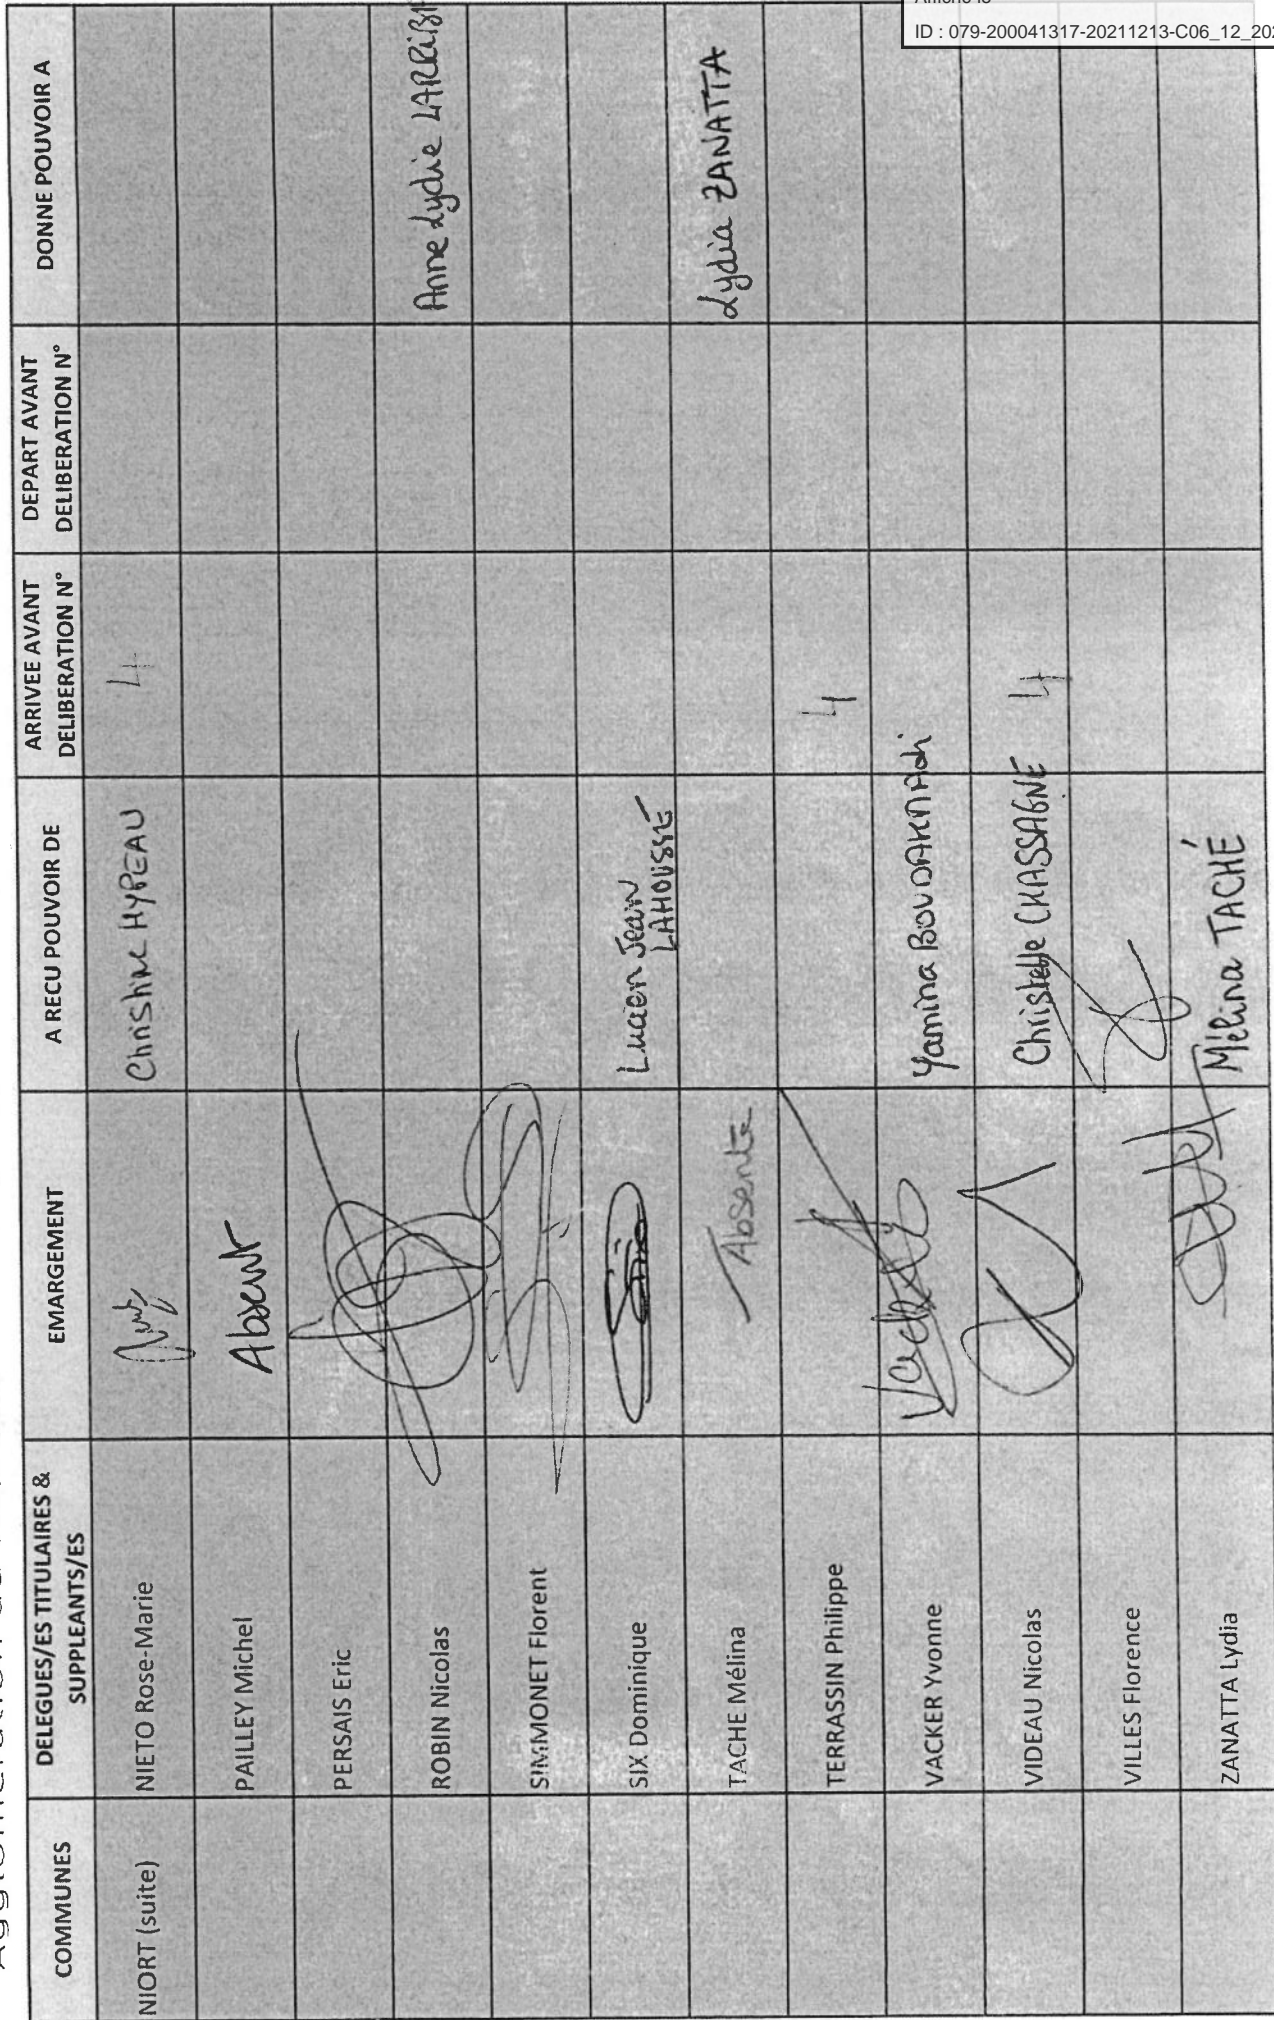 Affiché le
ID : 079-200041317-20211213-C06_12_202
Agglomération du
COMMUNES
DELEGUES/ES TITULAIRES &
SUPPLEANTS/ES
EMARGEMENT
A RECU POUVOIR DE
ARRIVEE AVANT
DELIBERATION N°
DEPART AVANT
DELIBERATION N°
DONNE POUVOIR A
NIORT (suite)
NIETO Rose-Marie
Christine HYPEAU
4
PAILLEY Michel
Absent
PERSAIS Eric
ROBIN Nicolas
Anne Lydie LARRIBA
SIMMONET Florent
SIX Dominique
Lucien Jean
LAHOUSSE
TACHE Mélina
Absente
Lydia ZANATTA
TERRASSIN Philippe
4
VACKER Yvonne
Yamina BOUDAHMANI
VIDEAU Nicolas
Christelle CHASSAGNE
4
VILLES Florence
ZANATTA Lydia
Mélina TACHÉ